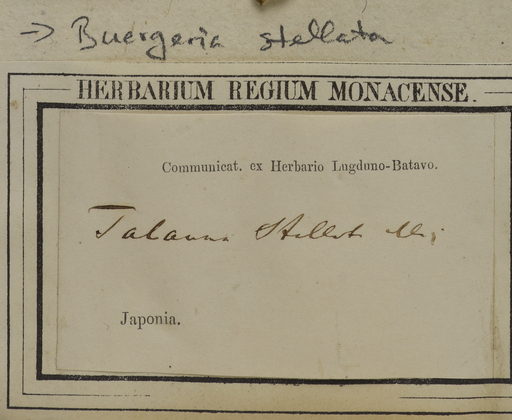 → Buergeria stellata
HERBARIUM REGIUM MONACENSE.
Communicat. ex Herbario Lugduno-Batavo.
Talauma stellata
Japonia.